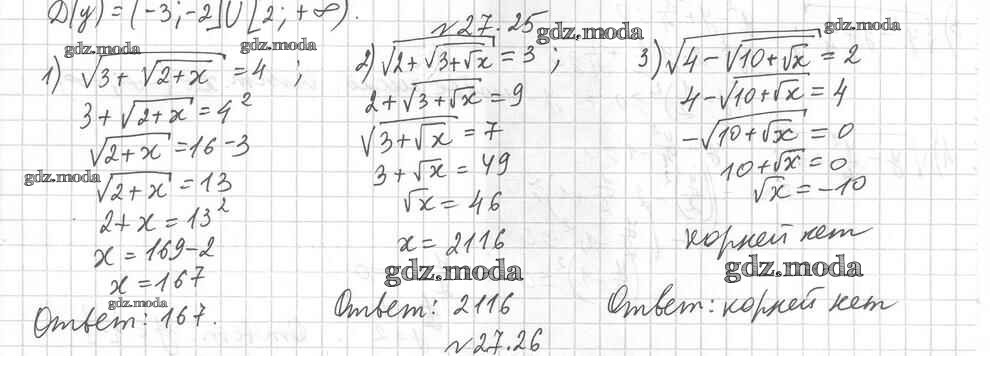 D(y) = (-3; -2] U [2; +∞).
№27.25
gdz.moda gdz.moda gdz.moda gdz.moda
1) √(3+√(2+x)) = 4 ;
3+√(2+x) = 4²
√(2+x) = 16-3
gdz.moda
√(2+x) = 13
2+x = 13²
x = 169-2
x = 167
gdz.moda
Ответ: 167.
2) √(2+√(3+√x)) = 3 ;
2+√(3+√x) = 9
√(3+√x) = 7
3+√x = 49
√x = 46
x = 2116
gdz.moda
Ответ: 2116
3) √(4-√(10+√x)) = 2
4-√(10+√x) = 4
-√(10+√x) = 0
10+√x = 0
√x = -10
корней нет
gdz.moda
Ответ: корней нет
№27.26